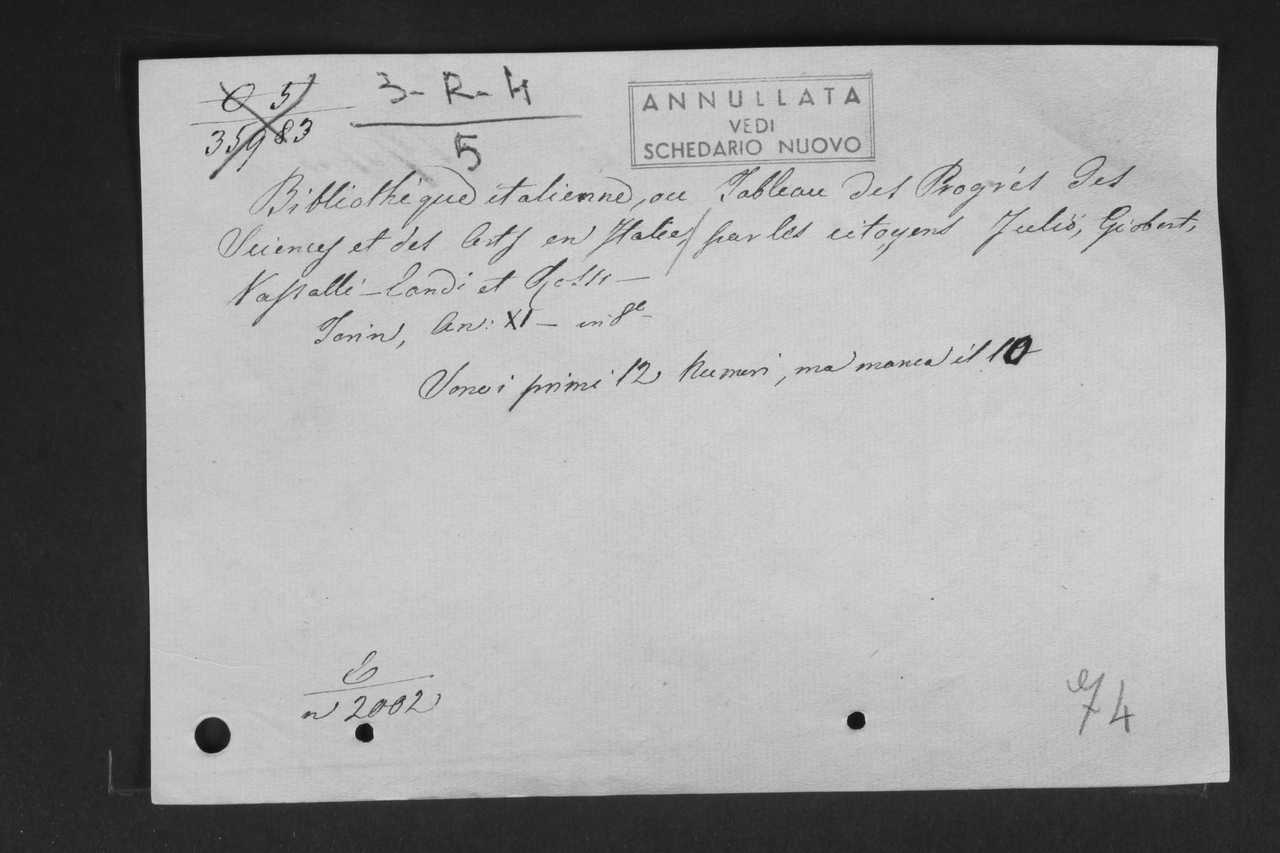 C 5
35983
3-R-H
5
ANNULLATA
VEDI
SCHEDARIO NUOVO
Bibliothéque italienne, ou Tableau des Progrés des
Sciences et des Arts en Italie, par les citoyens Julio, Giobert,
Vassalli-Landi et Rossi -
Turin, An: XI - in 8º
Sono i primi 12 Numeri, ma manca il 10
E
n 2002
74